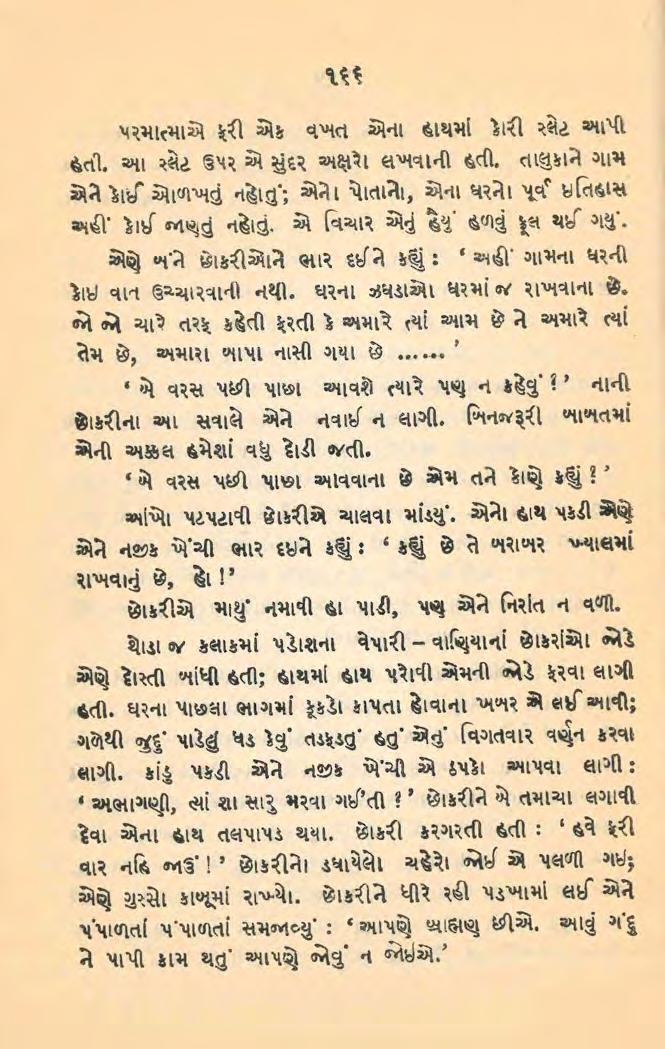 ૧૬૬
પરમાત્માએ ફરી એક વખત એના હાથમાં કોરી સ્લેટ આપી
હતી. આ સ્લેટ ઉપર એ સુંદર અક્ષરો લખવાની હતી. તાલુકાને ગામ
એને કોઈ ઓળખતું નહોતું; એનો પોતાનો, એના ઘરનો પૂર્વ ઇતિહાસ
અહીં કોઈ જાણતું નહોતું. એ વિચાર એનું હૈયું હળવું ફૂલ થઈ ગયું.
એણે બંને છોકરીઓને ભાર દઈને કહ્યું : ‘અહીં ગામના ઘરની
કોઇ વાત ઉચ્ચારવાની નથી. ઘરના ઝઘડાઓ ઘરમાં જ રાખવાના છે.
જો જો ચારે તરફ કહેતી ફરતી કે અમારે ત્યાં આમ છે ને અમારે ત્યાં
તેમ છે, અમારા બાપા નાસી ગયા છે ......’
‘બે વરસ પછી પાછા આવશે ત્યારે પણ ન કહેવું ?’ નાની
છોકરીના આ સવાલે એને નવાઈ ન લાગી. બિનજરૂરી બાબતમાં
એની અક્કલ હમેશાં વધુ દોડી જતી.
‘બે વરસ પછી પાછા આવવાના છે એમ તને કોણે કહ્યું ?’
આંખો પટપટાવી છોકરીએ ચાલવા માંડયું. એનો હાથ પકડી એણે
એને નજીક ખેંચી ભાર દઇને કહ્યું : ‘કહ્યું છે તે બરાબર ખ્યાલમાં
રાખવાનું છે, હો !’
છોકરીએ માથું નમાવી હા પાડી, પણ એને નિરાંત ન વળી.
થોડા જ કલાકમાં પડોશના વેપારી – વાણિયાનાં છોકરાંઓ જોડે
એણે દોસ્તી બાંધી હતી; હાથમાં હાથ પરોવી એમની જોડે ફરવા લાગી
હતી. ઘરના પાછલા ભાગમાં કૂકડો કાપતા હોવાના ખબર એ લઈ આવી;
ગળેથી જુદું પાડેલું ધડ કેવું તડફડતું હતું એનું વિગતવાર વર્ણન કરવા
લાગી. કાંડુ પકડી એને નજીક ખેંચી એ ઠપકો આપવા લાગી :
‘અભાગણી, ત્યાં શા સારુ મરવા ગઈ’તી ?’ છોકરીને બે તમાચા લગાવી
દેવા એના હાથ તલપાપડ થયા. છોકરી કરગરતી હતી : ‘હવે ફરી
વાર નહિ જાઉં !’ છોકરીનો ડઘાયેલો ચહેરો જોઈ એ પલળી ગઇ;
એણે ગુસ્સો કાબૂમાં રાખ્યો. છોકરીને ધીરે રહી પડખામાં લઈ એને
પંપાળતાં પંપાળતાં સમજાવ્યું : ‘આપણે બ્રાહ્મણ છીએ. આવું ગંદુ
ને પાપી કામ થતું આપણે જોવું ન જોઇએ.’